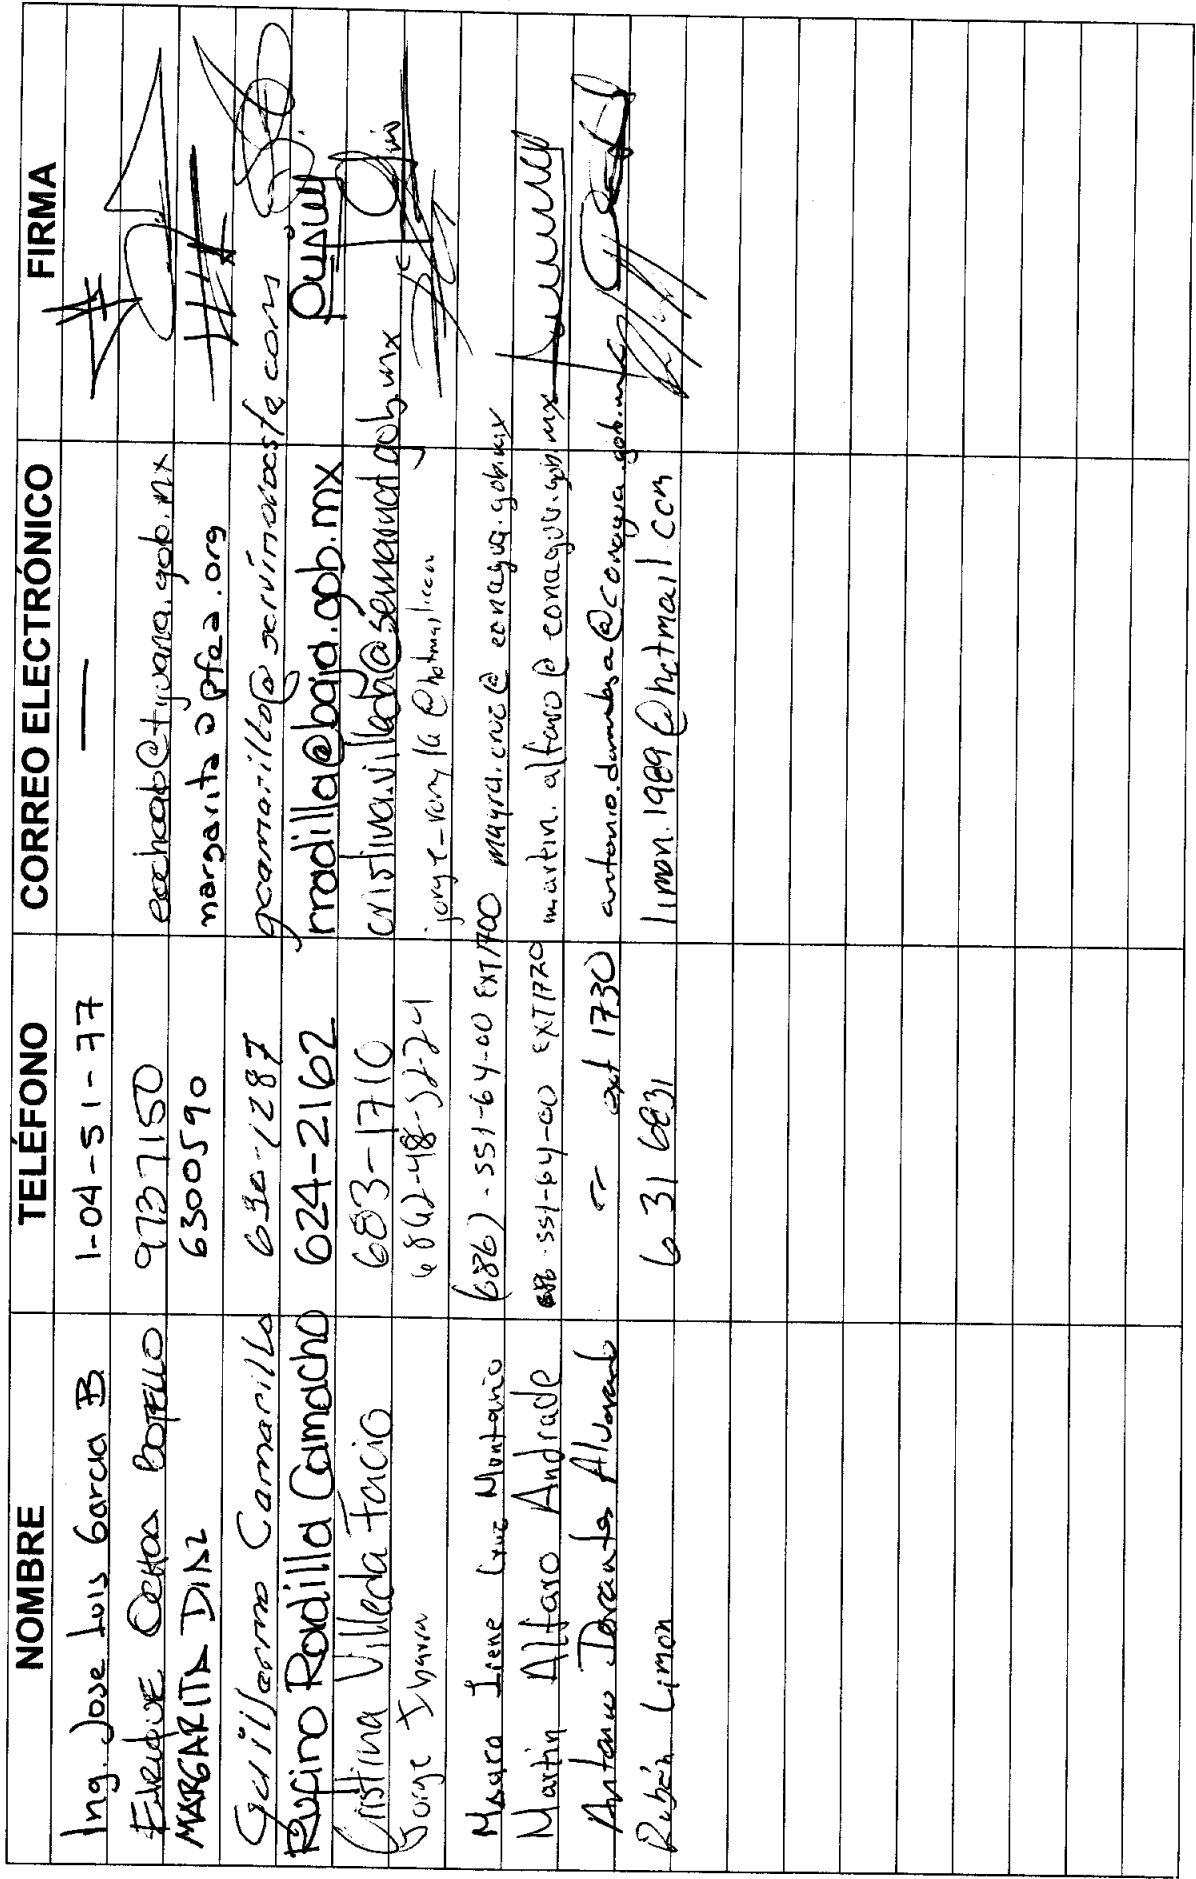 NOMBRE TELÉFONO CORREO ELECTRÓNICO FIRMA
Ing. Jose Luis Garcia B. 1-04-51-77 —
Enrique Ochoa Botello 9737150 eochoab@tijuana.gob.mx
MARGARITA DIAZ 6300590 margarita@pfea.org
Guillermo Camarillo 630-1287 gcamarillo@servimdocsta.com
Rufino Rodilla Camacho 624-2162 rrodilla@baja.gob.mx
Cristina Villeda Tacio 683-1710 cristina.villeda@semarnat.gob.mx
Jorge Ibarra
Mayra Irene Cruz Montaño (686)-551-64-00 EXT1700 mayra.cruz@conagua.gob.mx
Martin Alfaro Andrade 686-551-64-00 EXT1720 martin.alfaro@conagua.gob.mx
Antonio Dorantes Alvarado ext 1730
Rubén Limon 6 31 6831 limon.1989@hotmail.com